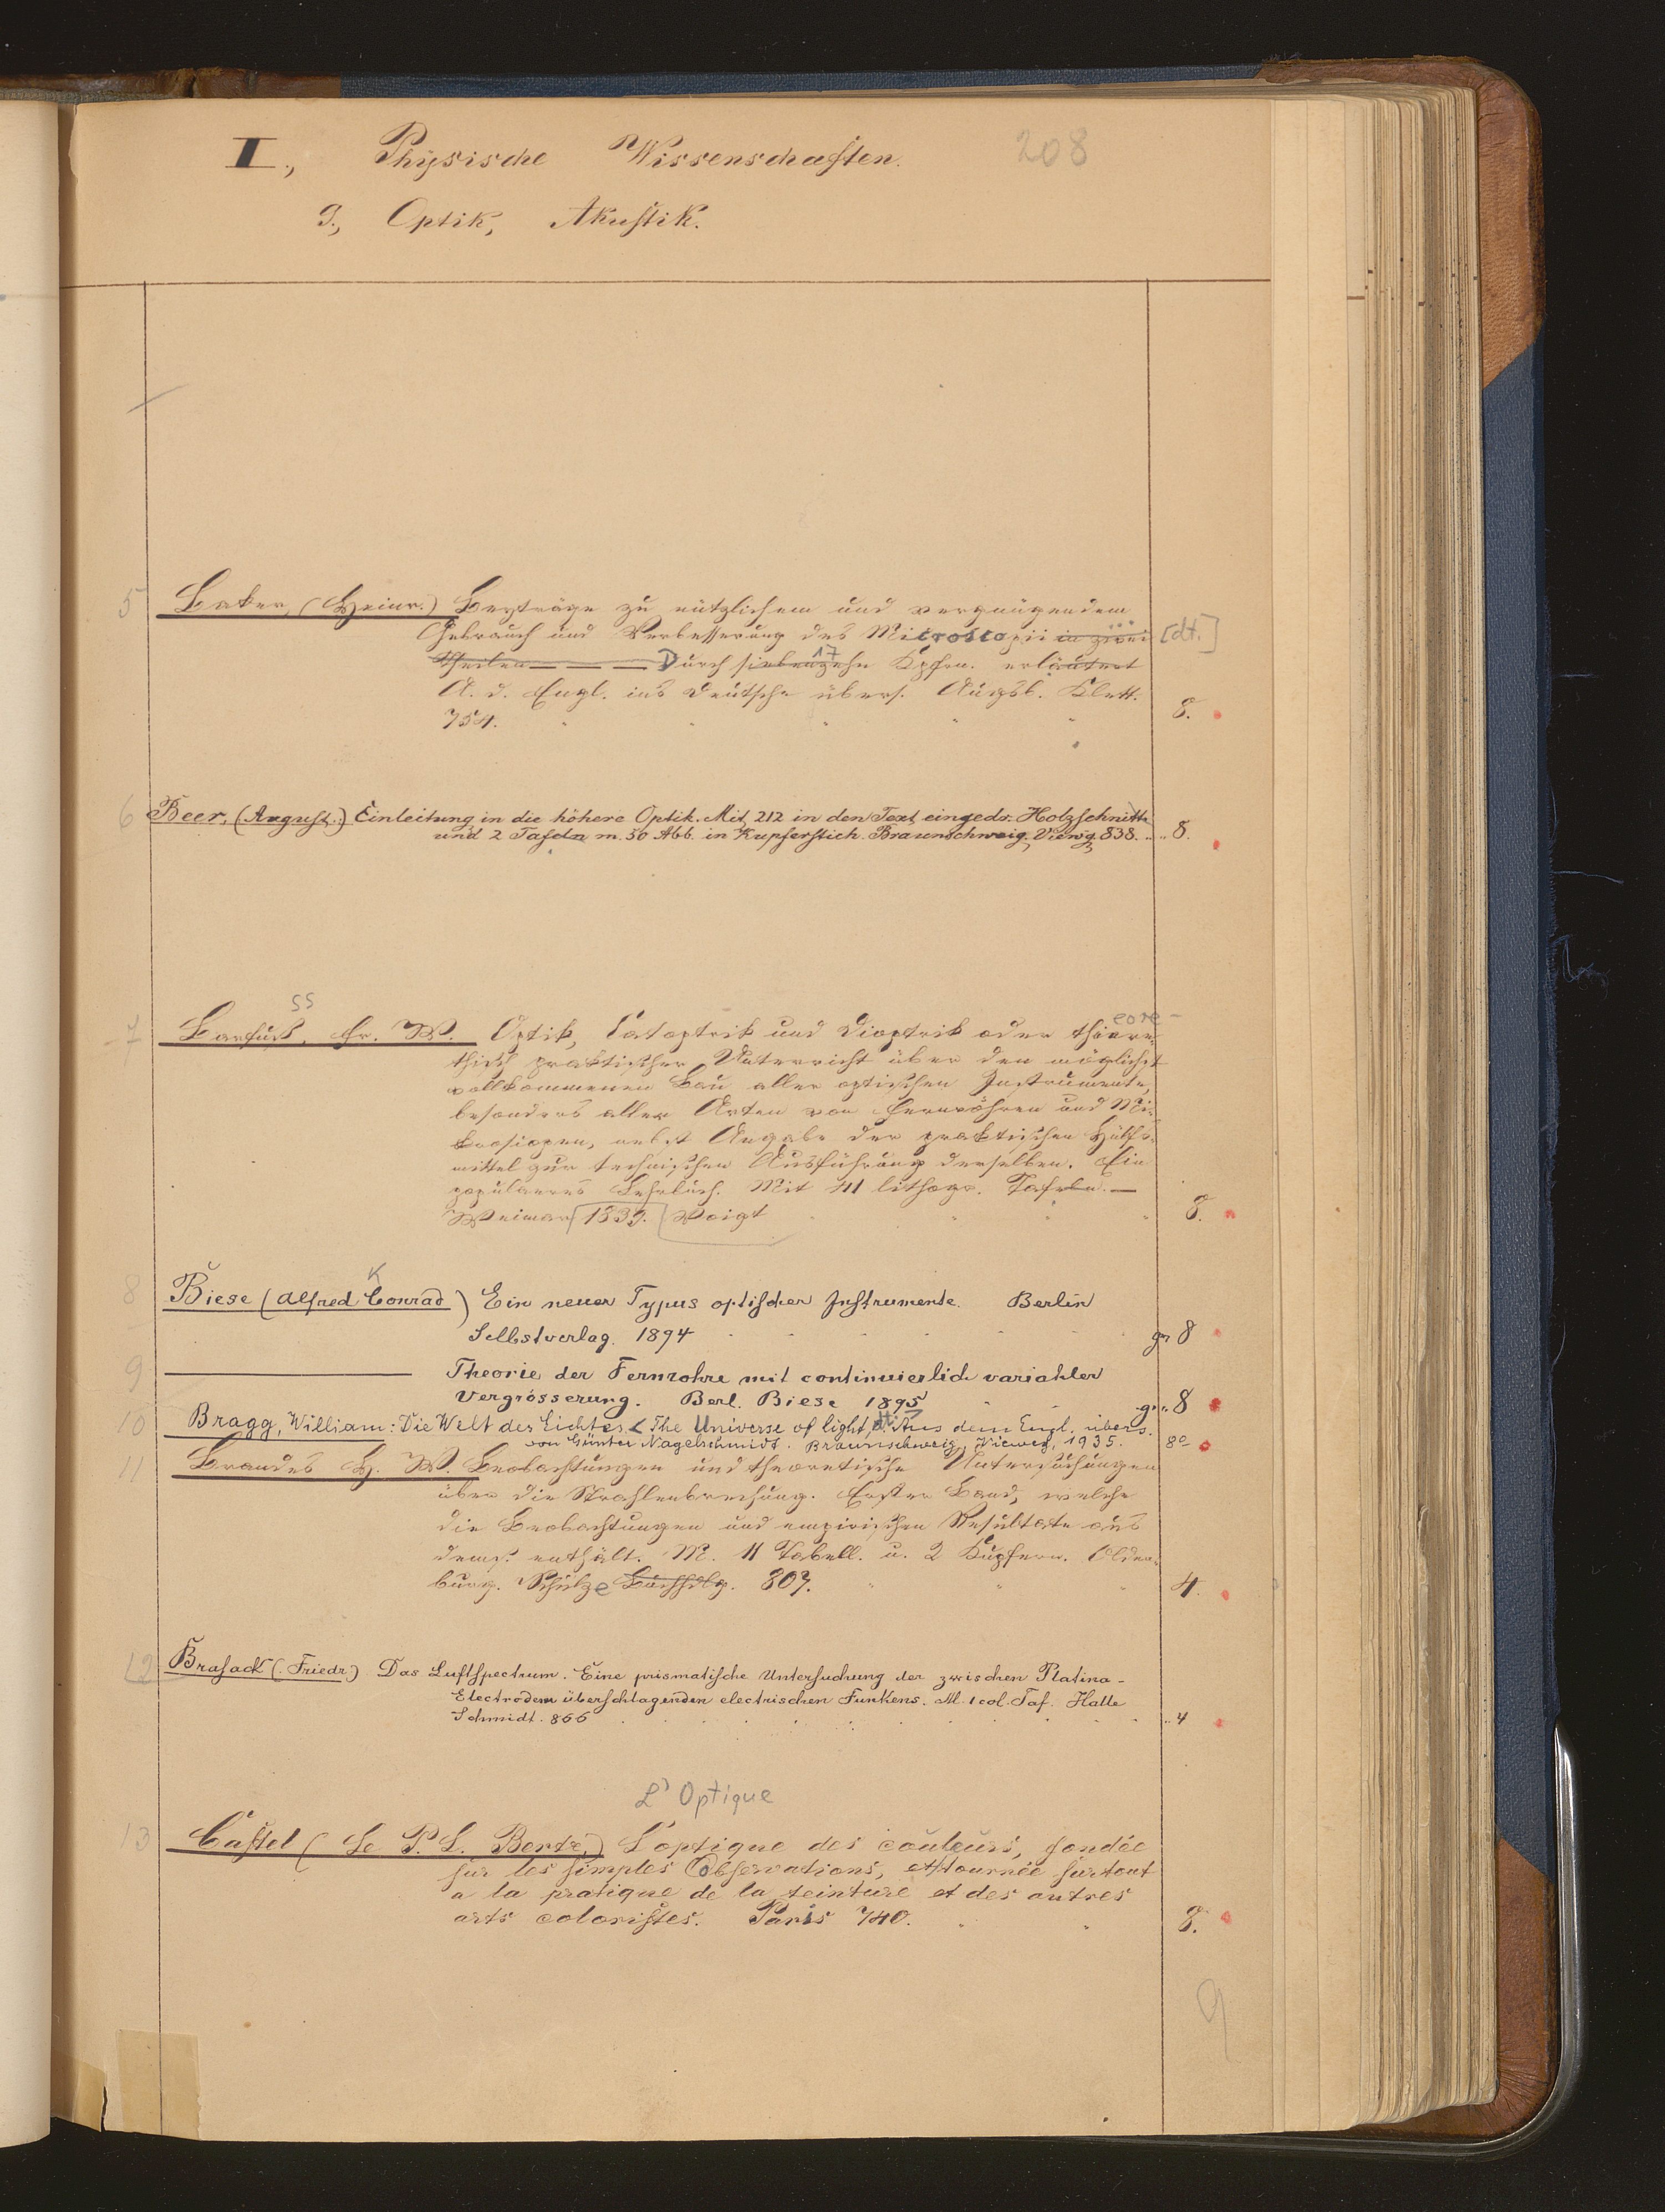 I., Physische Wissenschaften. 208
3., Optik, Akustik.
5 Baker, (Heinr.) Beyträge zu nützlichem und vergnügendem
Gebrauch und Verbesserung des Microscopii in zwei [dt.]
Theilen Durch siebenzehn 17 Kpfrn. erläutert
A. d. Engl. ins Deutsche übers. Augsb. Klett.
754. 8.
6 Beer, (August.) Einleitung in die höhere Optik. Mit 212 in den Text eingedr. Holzschnitt.
und 2 Tafeln m. 50 Abb. in Kupferstich. Braunschweig, Vieweg, 838. 8.
ss
7 Barfuß, Fr. W. Optik, Catoptrik und Dioptrik oder theore-
tisch praktischer Unterricht über den möglichst
vollkommenen Bau aller optischen Instrumente,
besonders aller Arten von Fernröhren und Mi-
kroscopen, nebst Angabe der praktischen Hülfs-
mittel zur technischen Ausführung derselben. Ein
populaeres Lehrbuch. Mit 41 lithogr. Tafeln. —
Weimar 1839. Voigt 8.
K
8 Biese (Alfred Conrad) Ein neuer Typus optischer Instrumente. Berlin
Selbstverlag. 1894 gr. 8
9 ——— Theorie der Fernrohre mit continuierlich variabler
Vergrösserung. Berl. Biese 1895 gr. 8
10 Bragg, William: Die Welt des Lichtes < The Universe of light, dt. > Aus dem Engl. übers.
von Günter Nagelschmidt. Braunschweig, Vieweg, 1935. 8°
11 Brandes H. W. Beobachtungen und theoretische Untersuchungen
über die Strahlenbrechung. Erster Band, welche
die Beobachtungen und empirischen Resultate aus
dens. enthält. M. 11 Tabell. u. 2 Kupfern. Olden-
burg. Schulze Buchhdlg. 807. 4.
12 Brasack (Friedr.) Das Luftspectrum. Eine prismatische Untersuchung der zwischen Platina-
Electroden überschlagenden electrischen Funkens. M. 1 col. Taf. Halle
Schmidt. 866 4
L'Optique
13 Castel (Le P. L. Bertr.) L'optique des couleurs, fondée
sur les simples Observations, et tournée surtout
a la pratique de la teinture et des autres
arts coloristes. Paris 740. 8.
9